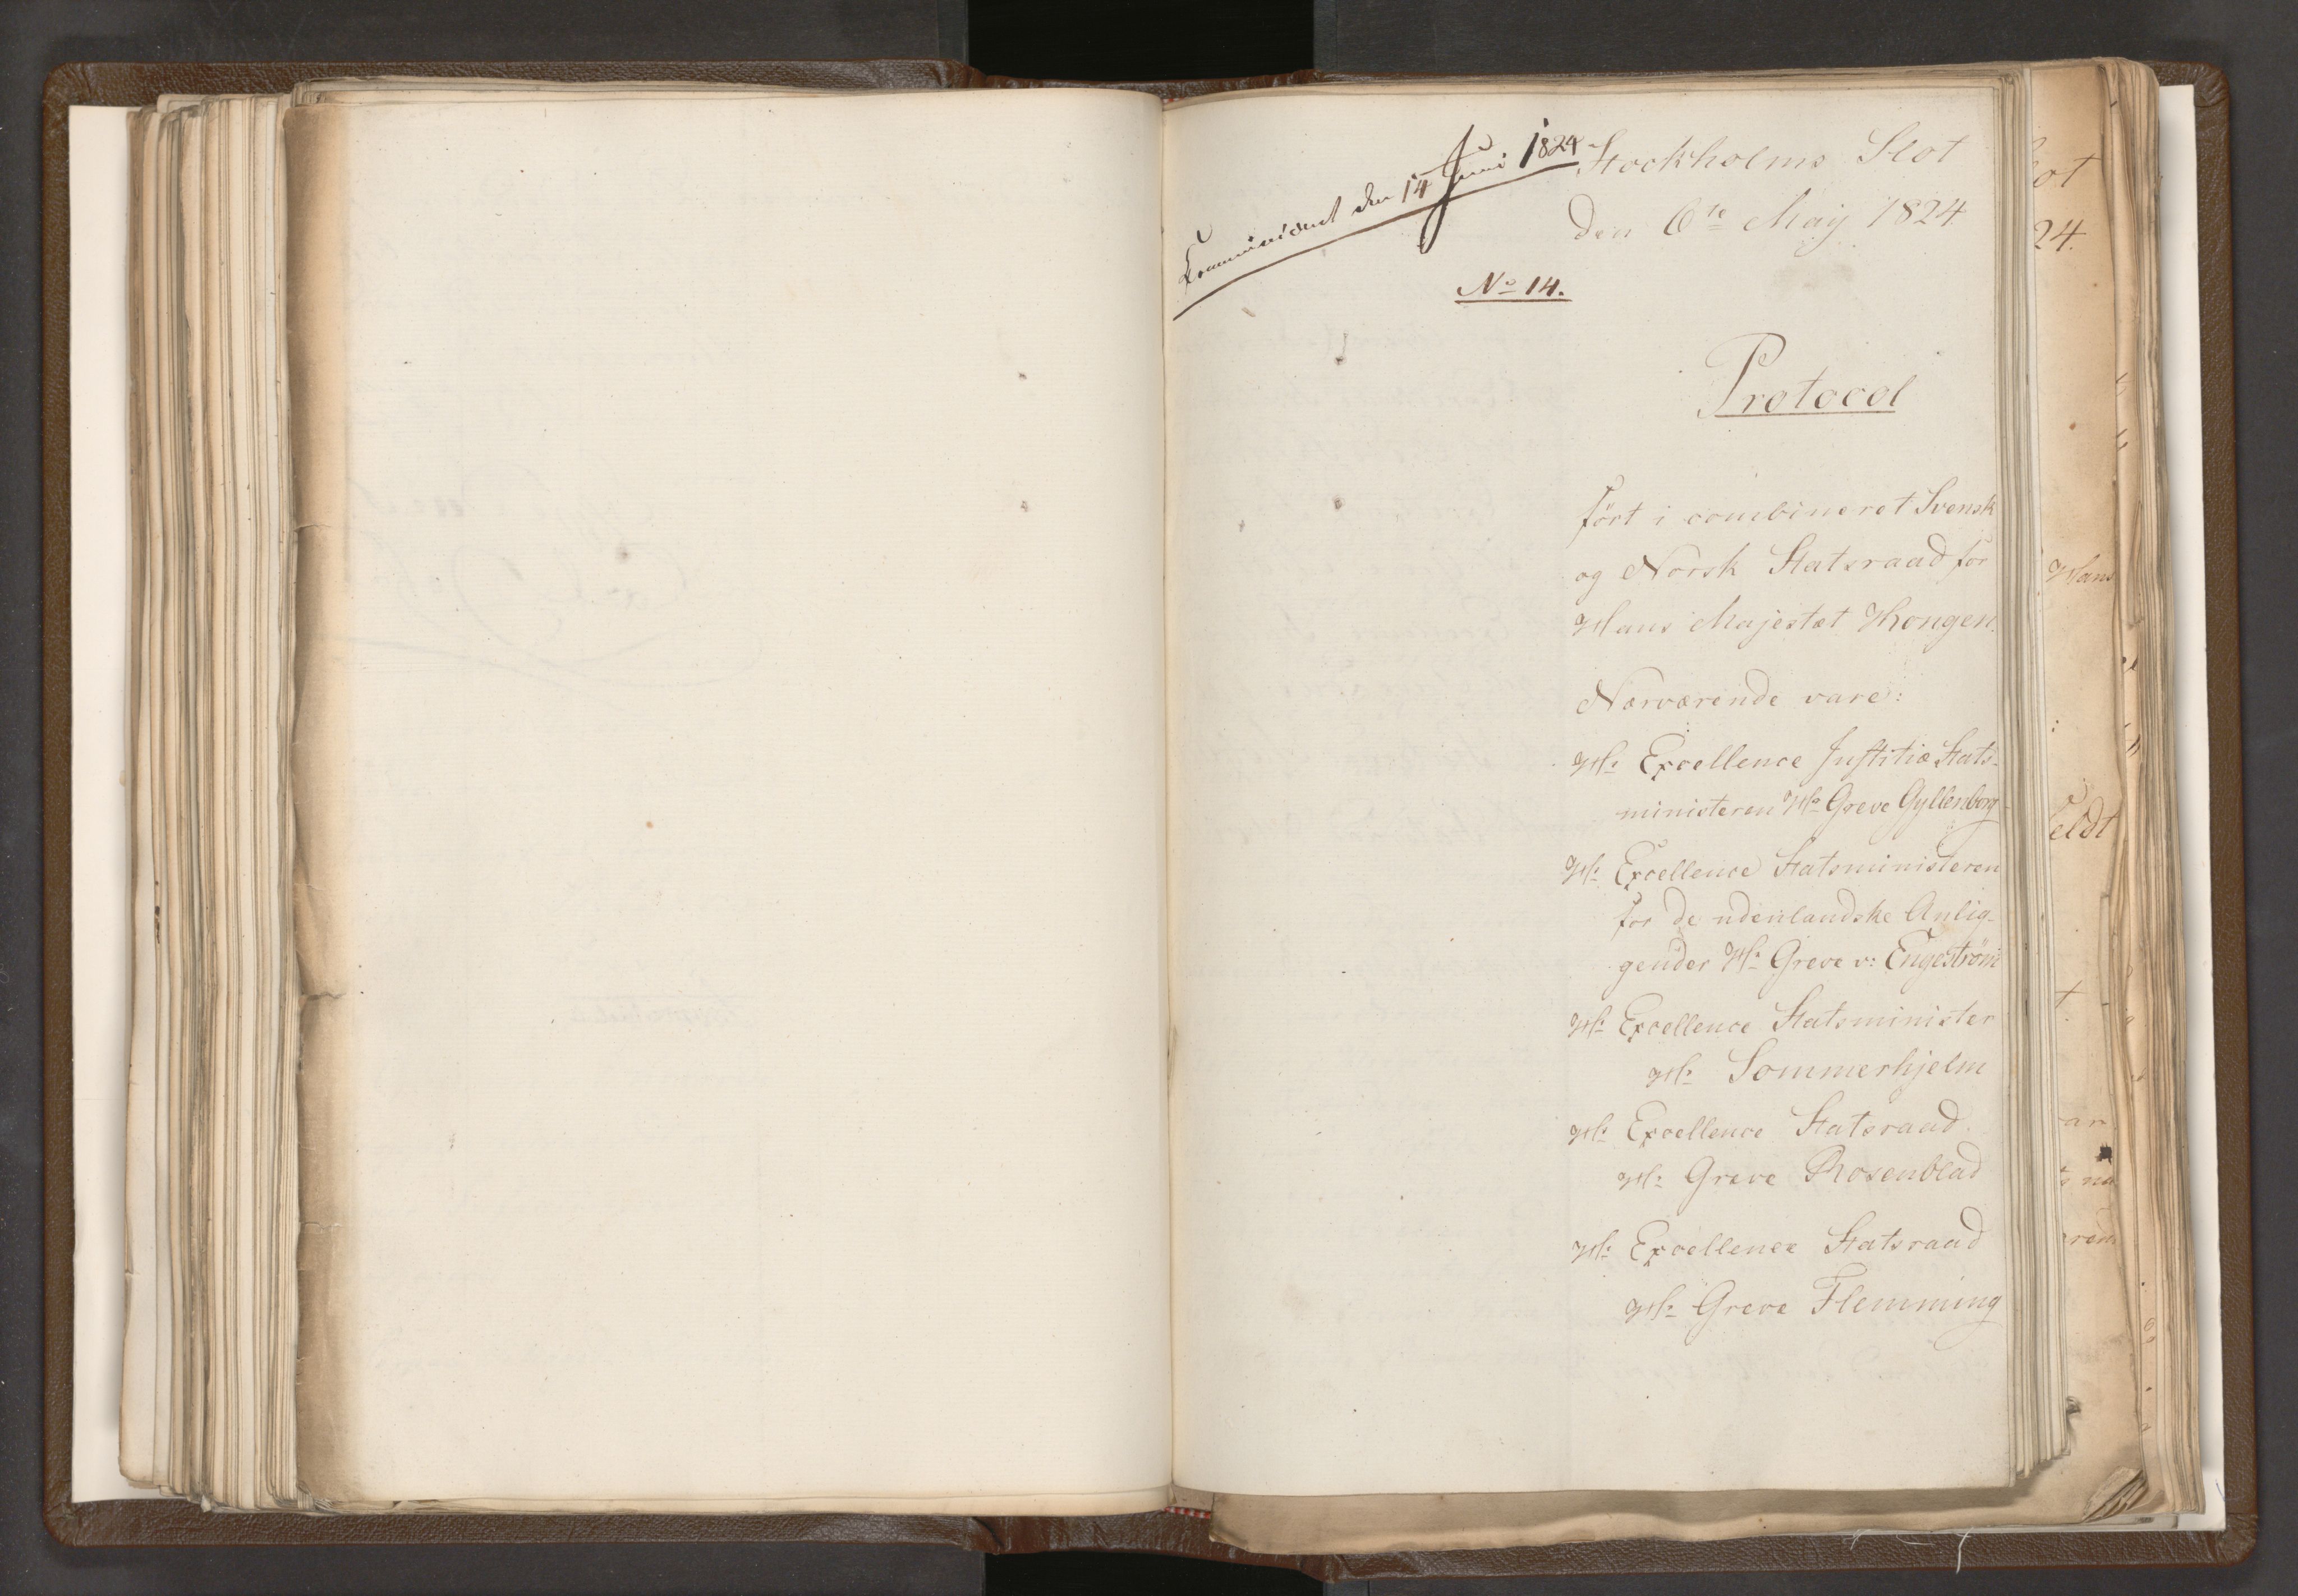 Stockholms Slot
den 6te May 1824
Communiceret den 14 Juni 1824
No 14.
Protocol
ført i combineret Svensk
og Norsk Statsraad for
Hans Majestæt Kongen.
Nærværende vare:
Hr: Excellence Justitiæ Stats-
ministeren Hr: Greve Gyllenborg
Hr: Excellence Statsministeren
for de udenlandske Anlig-
gender Hr: Greve v: Engeström
Hr: Excellence Statsminister
Hr: Sommerhjelm
Hr: Excellence Statsraad
Hr: Greve Rosenblad
Hr: Excellence Statsraad
Hr: Greve Flemming
24.
Hans